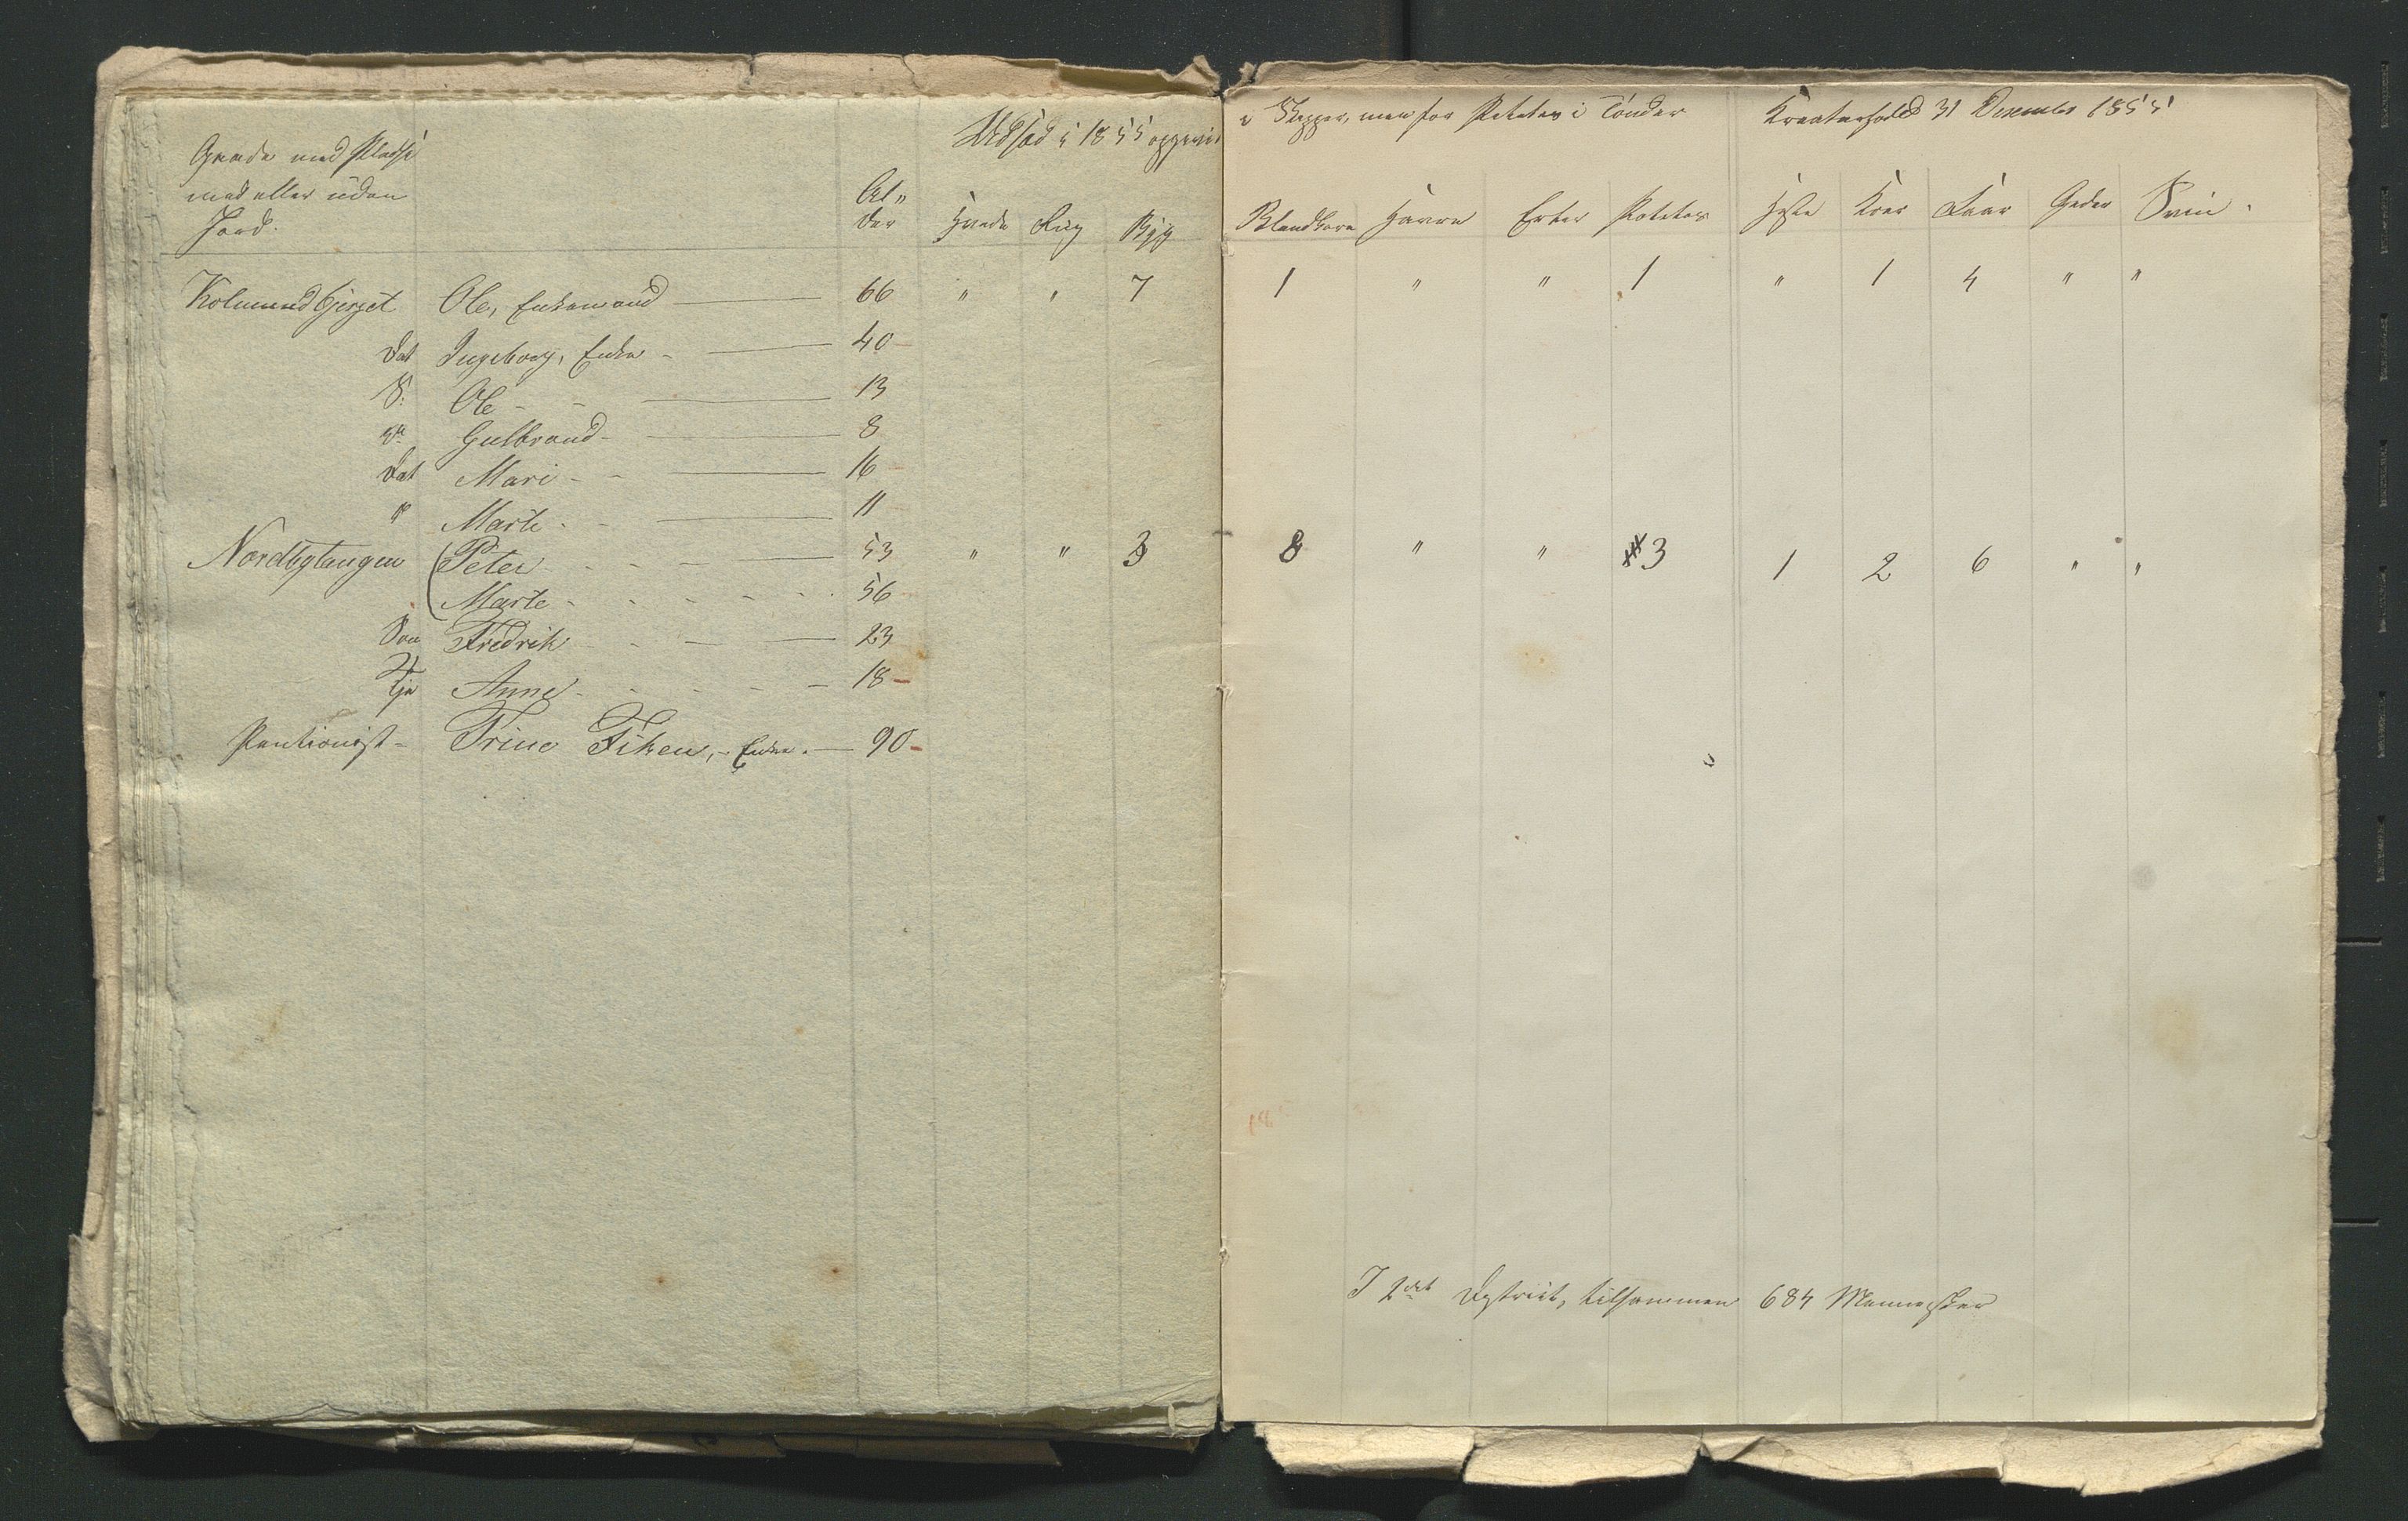 Gaarde med Pladse
med eller uden
Jord.
Al„
der
Udsæd i 1855 opgivet
Hvede Rug Byg
i Skjepper, men for Poteter i Tønder
Kreaturhold 31 December 1855
Blandkorn Havre Erter Poteter Heste Kjør Faar Geder Svin.
Kolmundbjerget Ole, Enkemand — 66 " " 7 1 " " 1 " 1 4 " "
Dat Ingeborg, Enke — 40
S. Ole — 13
" Gulbrand — 8
Dat Mari — 16
" Marte — 11
Nordbytangen Peter — 53 " " 3 8 " " 3 1 2 6 " "
Marte - 56
Søn Fredrik — 23
Tje Anne - 18
Pentionist - Trine Fiken, - Enke. — 90
I 2det Dystrict, tilsammen 684 Mennesker